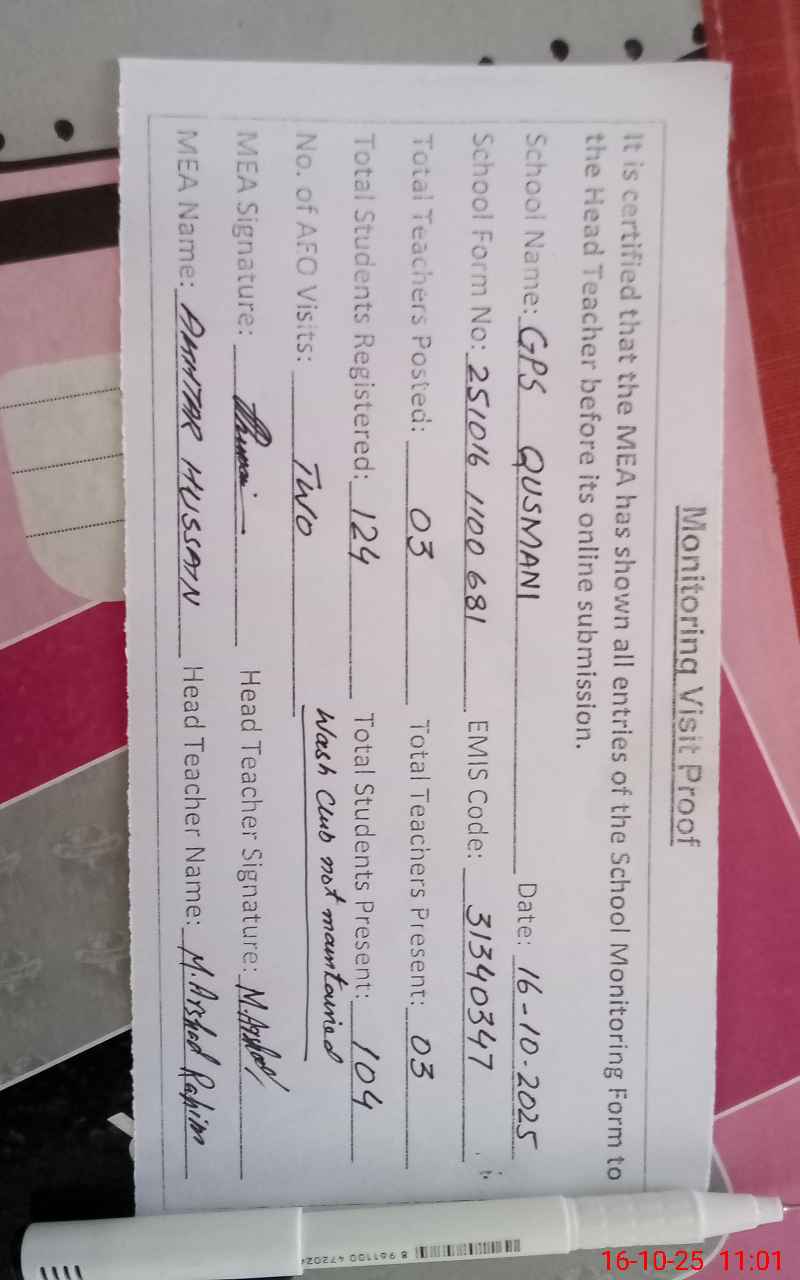 Monitoring Visit Proof
It is certified that the MEA has shown all entries of the School Monitoring Form to
the Head Teacher before its online submission.
School Name: GPS QUSMANI Date: 16-10-2025
School Form No: 251016 1100 681 EMIS Code: 31340347
Total Teachers Posted: 03 Total Teachers Present: 03
Total Students Registered: 124 Total Students Present: 104
No. of AFO Visits: TWO Wash Club not maintained
MEA Signature: Head Teacher Signature: M. Arshad
MEA Name: HUSSAIN Head Teacher Name: M. Arshad Rahim
16-10-25 11:01